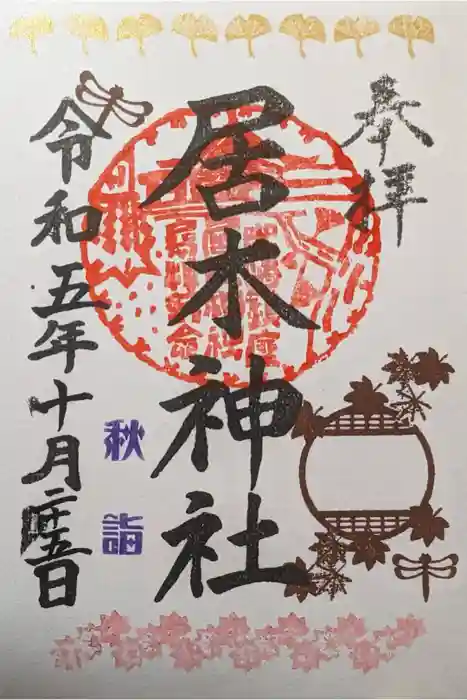 奉拝
居木神社
秋詣
令和五年十月二十五日